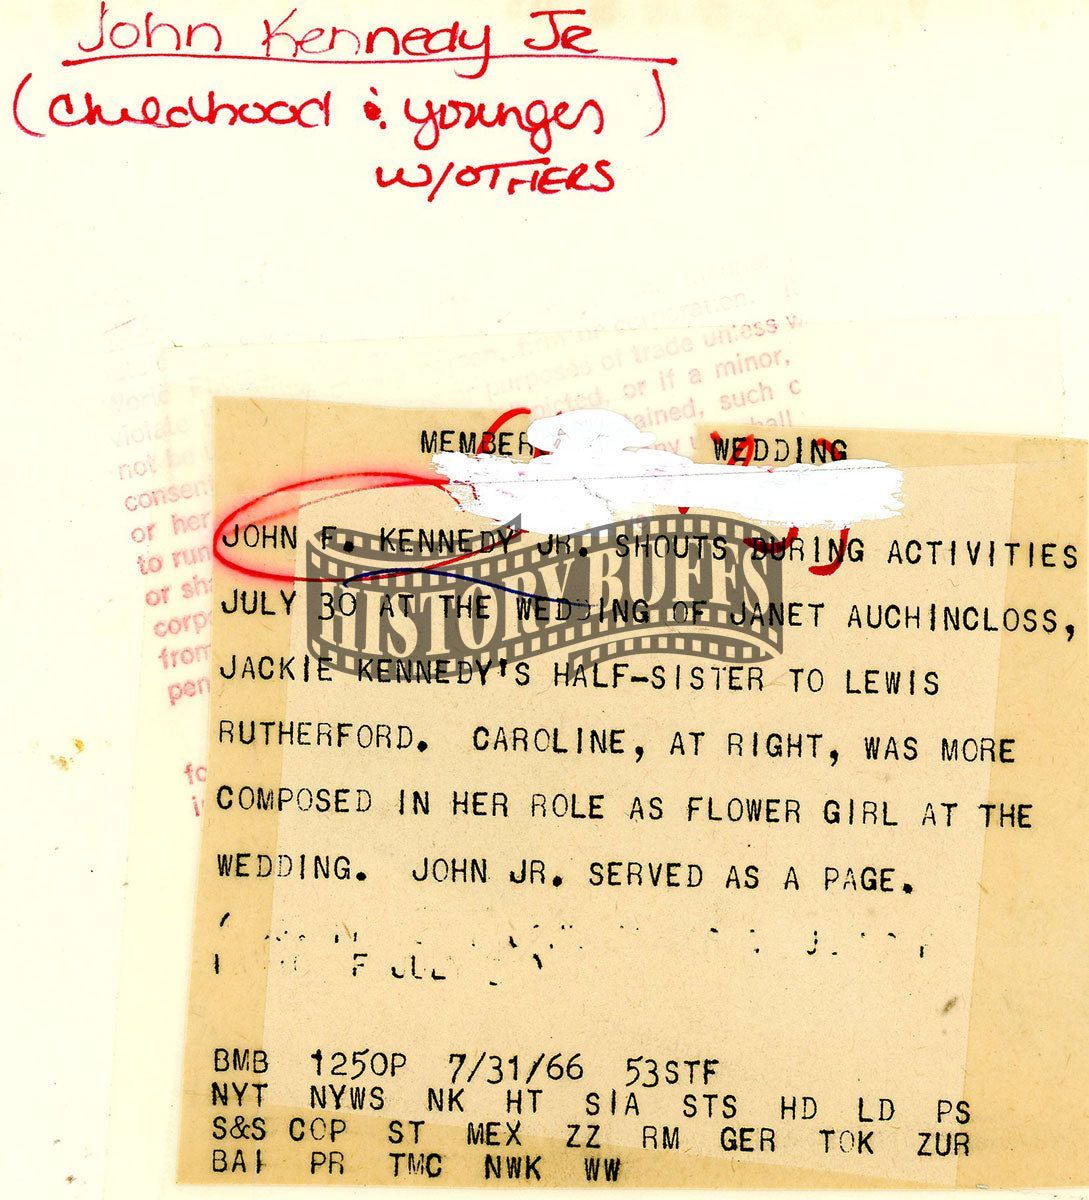 John Kennedy Jr
(childhood & younger)
W/OTHERS
corporation.
purposes of trade unless
World
violate
depicted, or if a minor,
not be
such
consent
or her
to run
or
from
MEMBER WEDDING
JOHN F. KENNEDY JR. SHOUTS DURING ACTIVITIES
HISTORY BUFFS
JULY 30 AT THE WEDDING OF JANET AUCHINCLOSS,
JACKIE KENNEDY'S HALF-SISTER TO LEWIS
RUTHERFORD. CAROLINE, AT RIGHT, WAS MORE
COMPOSED IN HER ROLE AS FLOWER GIRL AT THE
WEDDING. JOHN JR. SERVED AS A PAGE.
BMB 1250P 7/31/66 53STF
NYT NYWS NK HT SIA STS HD LD PS
S&S COP ST MEX ZZ RM GER TOK ZUR
BAI PR TMC NWK WW